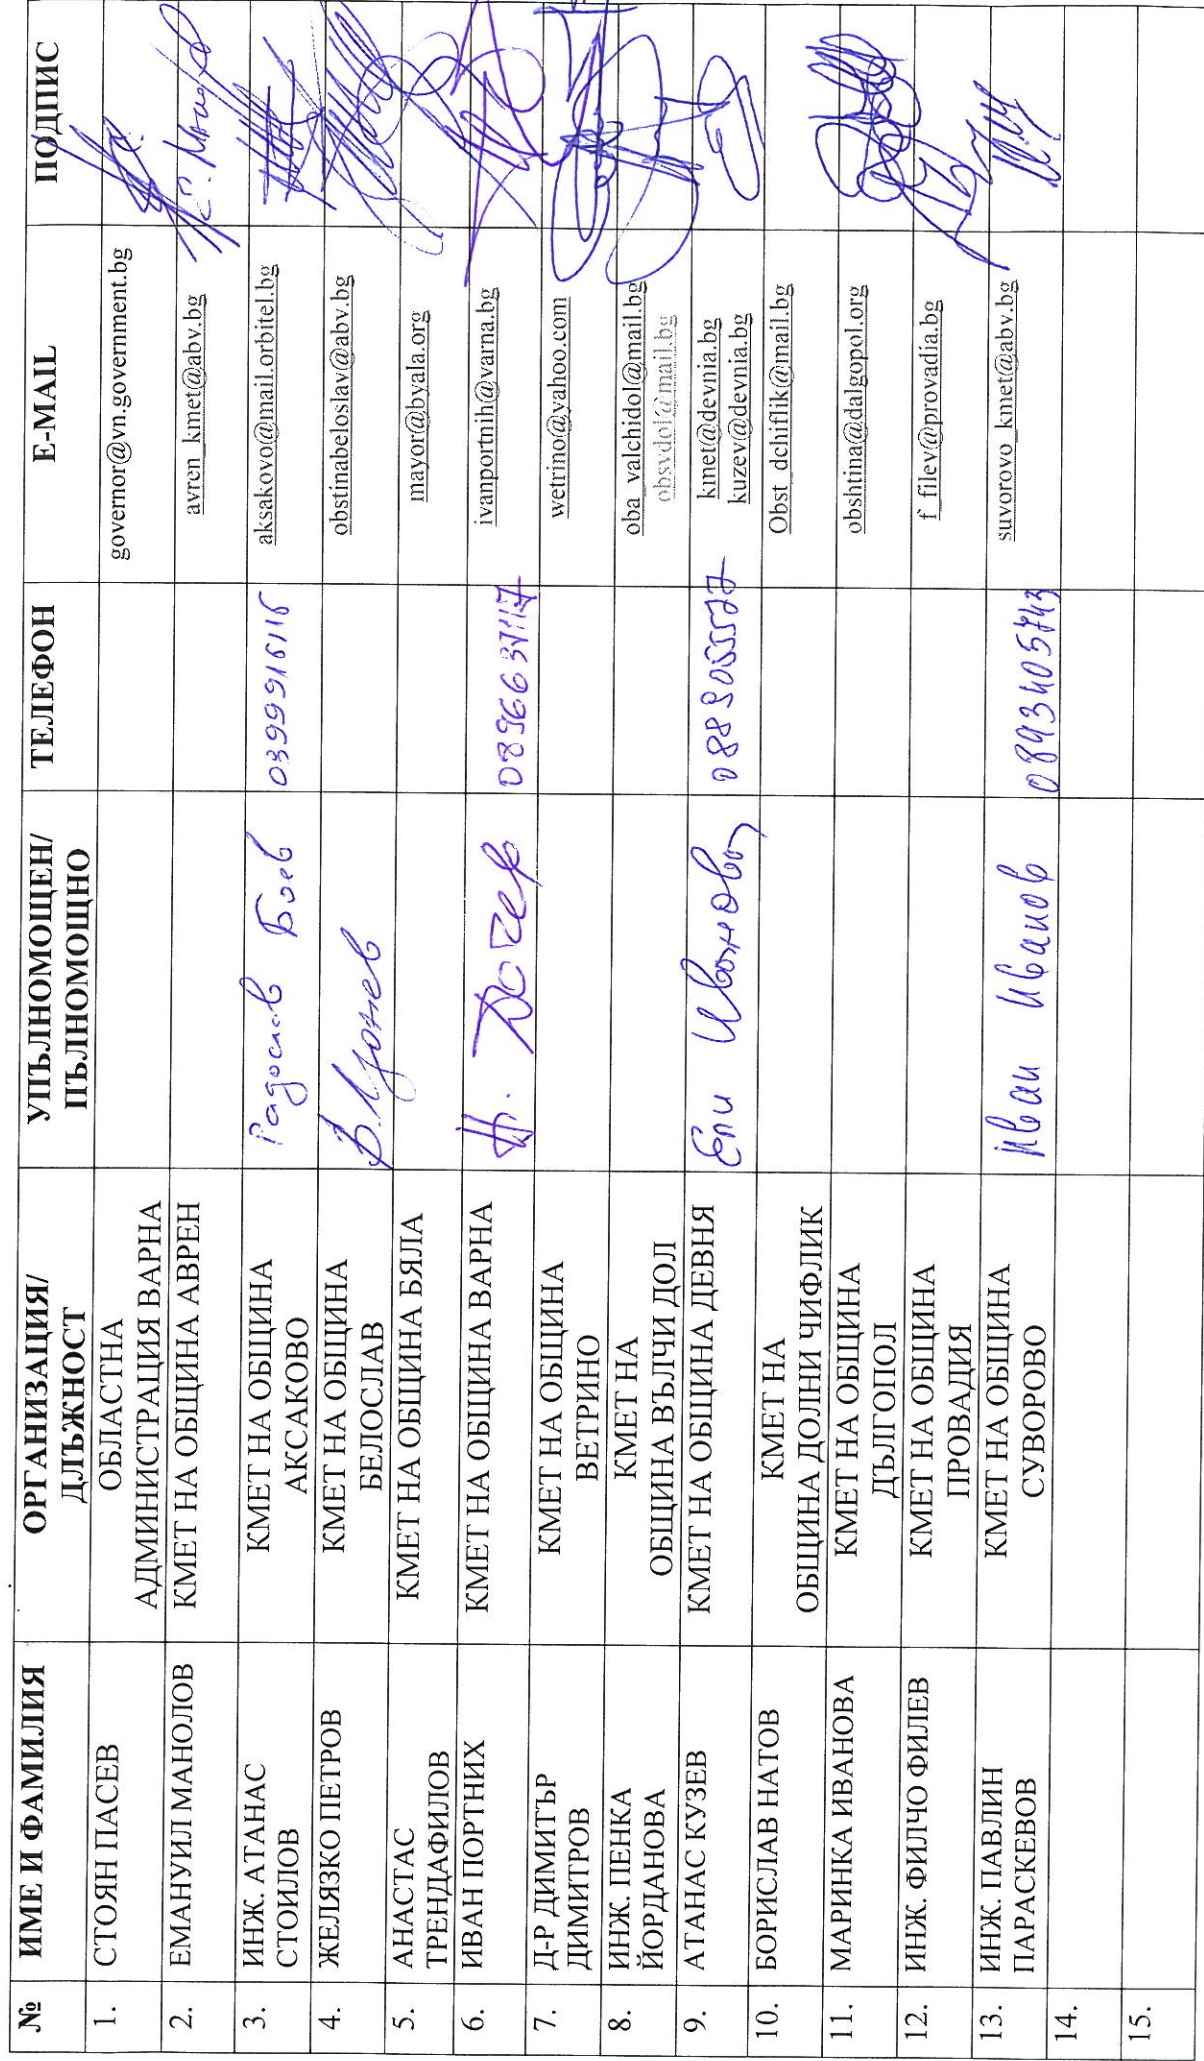 № ИМЕ И ФАМИЛИЯ ОРГАНИЗАЦИЯ/ ДЛЪЖНОСТ УПЪЛНОМОЩЕН/ ПЪЛНОМОЩНО ТЕЛЕФОН E-MAIL ПОДПИС
1. СТОЯН ПАСЕВ ОБЛАСТНА АДМИНИСТРАЦИЯ ВАРНА governor@vn.government.bg
2. ЕМАНУИЛ МАНОЛОВ КМЕТ НА ОБЩИНА АВРЕН avren_kmet@abv.bg
3. ИНЖ. АТАНАС СТОИЛОВ КМЕТ НА ОБЩИНА АКСАКОВО Радослав Боев aksakovo@mail.orbitel.bg
4. ЖЕЛЯЗКО ПЕТРОВ КМЕТ НА ОБЩИНА БЕЛОСЛАВ obstinabeloslav@abv.bg
5. АНАСТАС ТРЕНДАФИЛОВ КМЕТ НА ОБЩИНА БЯЛА mayor@byala.org
6. ИВАН ПОРТНИХ КМЕТ НА ОБЩИНА ВАРНА ivanportnih@varna.bg
7. Д-Р ДИМИТЪР ДИМИТРОВ КМЕТ НА ОБЩИНА ВЕТРИНО wetrino@yahoo.com
8. ИНЖ. ПЕНКА ЙОРДАНОВА КМЕТ НА ОБЩИНА ВЪЛЧИ ДОЛ oba_valchidol@mail.bg
obsvdol@mail.bg
9. АТАНАС КУЗЕВ КМЕТ НА ОБЩИНА ДЕВНЯ Ели Иванова kmet@devnia.bg
kuzev@devnia.bg
10. БОРИСЛАВ НАТОВ КМЕТ НА ОБЩИНА ДОЛНИ ЧИФЛИК Obst_dchiflik@mail.bg
11. МАРИНКА ИВАНОВА КМЕТ НА ОБЩИНА ДЪЛГОПОЛ obshtina@dalgopol.org
12. ИНЖ. ФИЛЧО ФИЛЕВ КМЕТ НА ОБЩИНА ПРОВАДИЯ f_filev@provadia.bg
13. ИНЖ. ПАВЛИН ПАРАСКЕВОВ КМЕТ НА ОБЩИНА СУВОРОВО Иван Иванов 0893405743 suvorovo_kmet@abv.bg
14.
15.